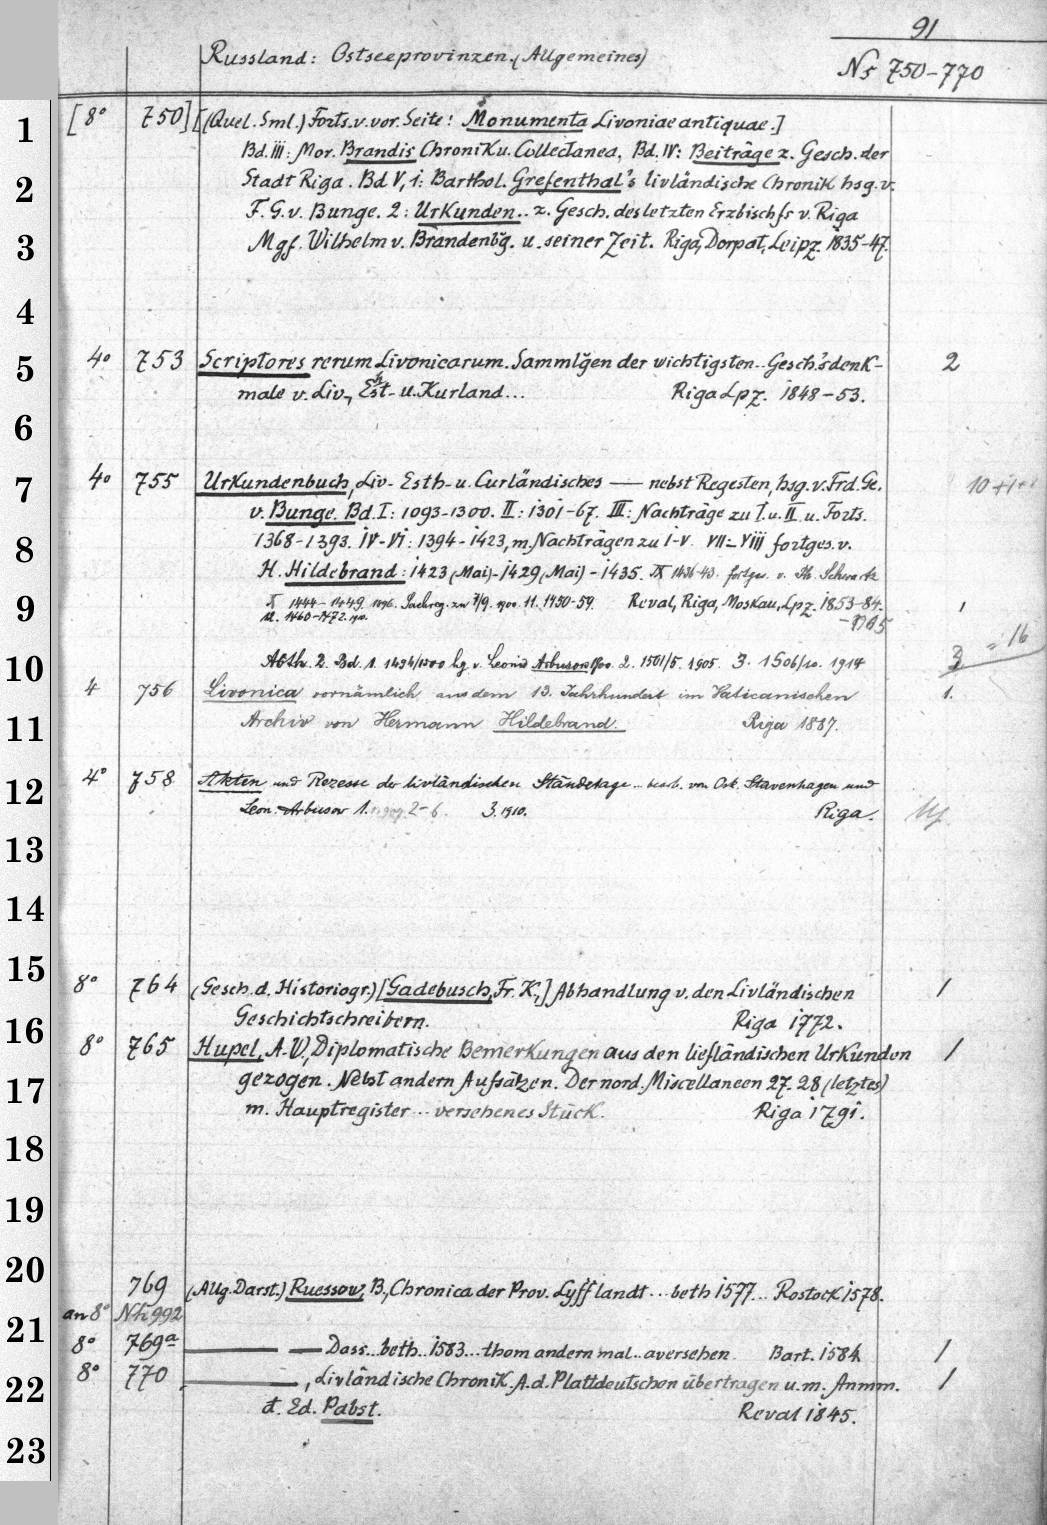 91
Russland: Ostseeprovinzen. (Allgemeines)
Ns 750-770
1 [8° 750] [(Quel. Sml.) Forts. v. vor. Seite: Monumenta Livoniae antiquae.]
Bd. III: Mor. Brandis Chronik u. Collectanea, Bd. IV: Beiträge z. Gesch. der
2 Stadt Riga. Bd V, 1: Barthol. Grefenthal's livländische Chronik hsg. v.
F. G. v. Bunge. 2: Urkunden.. z. Gesch. des letzten Erzbischfs v. Riga
3 Mgf. Wilhelm v. Brandenbg. u. seiner Zeit. Riga, Dorpat, Leipz. 1835-47.
4
5 4° 753 Scriptores rerum Livonicarum. Sammlgen der wichtigsten.. Gesch.'sdenk- 2
male v. Liv-, Est- u. Kurland... Riga Lpz. 1848-53.
6
7 4° 755 Urkundenbuch, Liv- Esth- u. Curländisches — nebst Regesten, hsg. v. Frd. Ge. 10+1+1
v. Bunge. Bd. I: 1093-1300. II: 1301-67. III: Nachträge zu I. u. II u. Forts.
8 1368-1393. IV-VI: 1394-1423, m. Nachträgen zu I-V. VII-VIII fortges. v.
H. Hildebrand: 1423 (Mai)-1429 (Mai) - 1435. IX 1436-43. fortges. v. Ph. Schwartz
9 X 1444-1449. 1896. Sachreg. zu 7/9. 1900. 11. 1450-59. Reval, Riga, Moskau, Lpz. 1853-84. 1
12. 1460-1472. 1910. -1905
10 Abth. 2. Bd. 1. 1494/1500 hg. v. Leonid Arbusow 1900. 2. 1501/5. 1905. 3. 1506/10. 1914 3 = 16
4 756 Livonica vornämlich aus dem 13. Jahrhundert im Vaticanischen 1.
11 Archiv von Hermann Hildebrand. Riga 1887.
12 4° 758 Akten und Rezesse der livländischen Ständetage... bearb. von Osk. Stavenhagen und
Leon. Arbusow 1. 2-6. 3. 1910. Riga.
13
14
15 8° 764 (Gesch. d. Historiogr.) [Gadebusch, Fr. K.,] Abhandlung v. den Livländischen 1
16 Geschichtschreibern. Riga 1772.
8° 765 Hupel, A. W, Diplomatische Bemerkungen aus den liefländischen Urkunden 1
17 gezogen. Nebst andern Aufsätzen. Der nord. Miscellaneen 27. 28 (letztes)
m. Hauptregister ... versehenes Stück. Riga 1791.
18
19
20 769 (Allg. Darst.) Ruessow, B., Chronica der Prov. Lyfflandt ... beth 1577... Rostock 1578.
an 8° Nh 992
21 8° 769a — — Dass... beth.. 1583... thom andern mal.. aversehen. Bart. 1584 1
22 8° 770 —, Livländische Chronik. A. d. Plattdeutschen übertragen u. m. Anmm. 1
d. Ed. Pabst. Reval 1845.
23